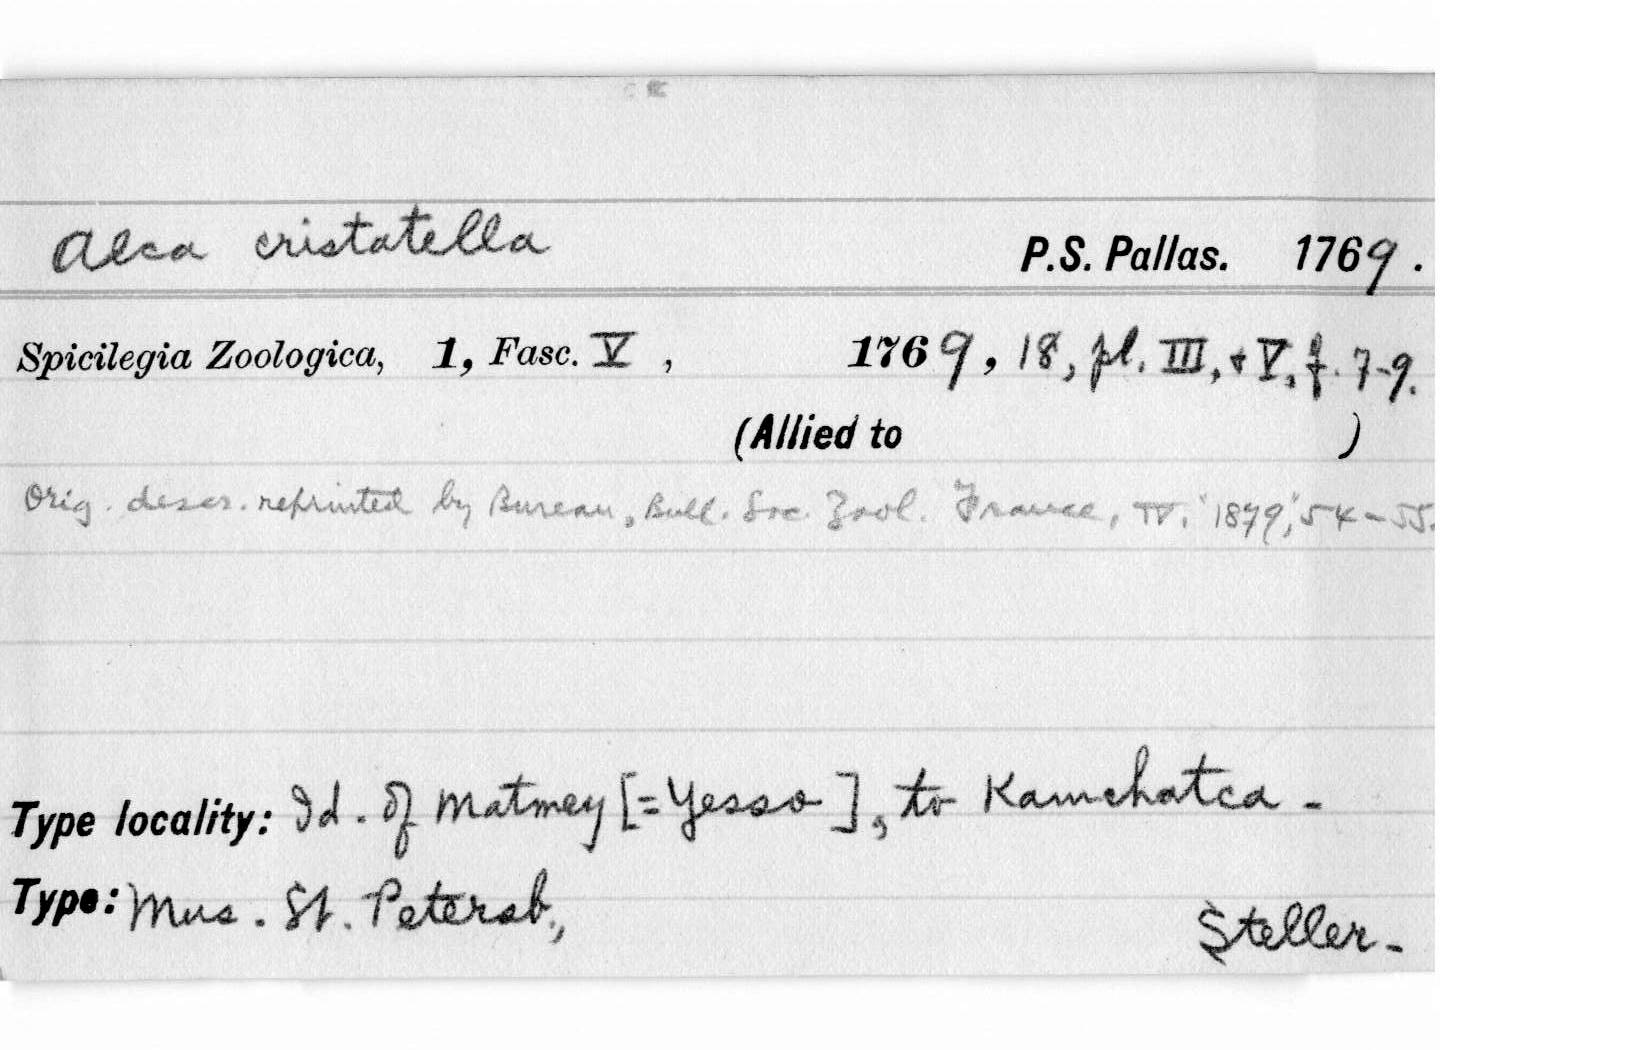 Alca cristatella
P.S. Pallas. 1769.
Spicilegia Zoologica, 1, Fasc. V, 1769, 18, pl. III, + V, f. 7-9.
(Allied to )
Orig. descr. reprinted by Bureau, Bull. Soc. Zool. France, IV. "1879," 54-55.
Type locality: Id. of Matmey [=Yesso], to Kamchatca -
Type: Mus. St. Petersb.,
Steller -